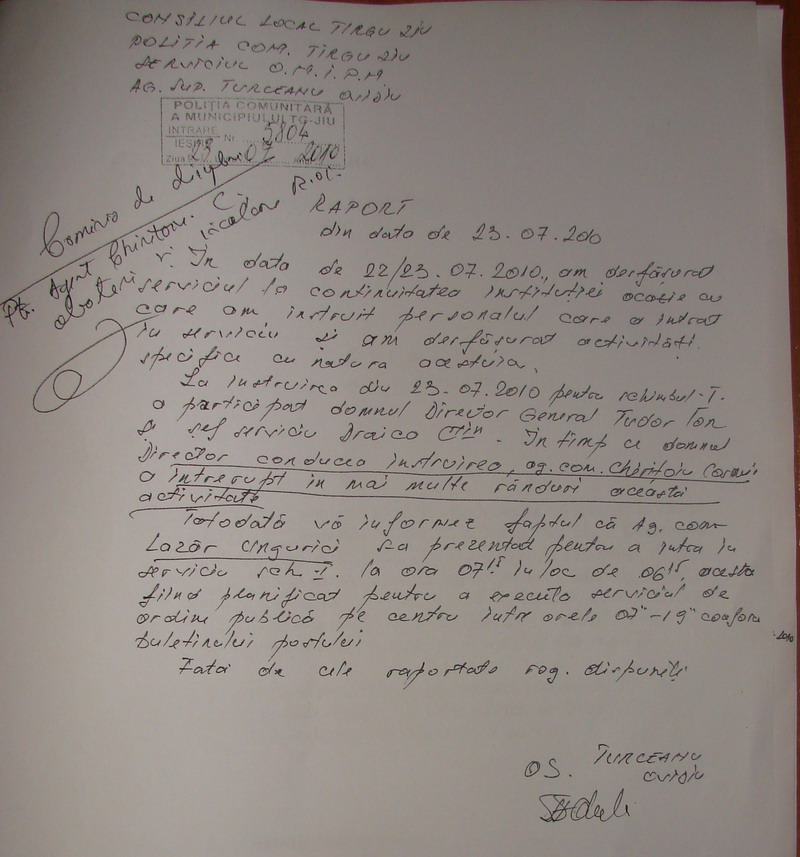 CONSILIUL LOCAL TIRGU JIU
POLITIA COM. TIRGU JIU
SERVICIUL O.M.I.P.M
AG. SUP. TURCEANU OVIDIU
POLIŢIA COMUNITARĂ
A MUNICIPIULUI TG-JIU
INTRARE
IEŞIRE Nr. 5804
Ziua 23 07 2010
Comisia de disciplină
Pt. Agent Chiritoiu C.
abateri și incalcare R.O.I.
RAPORT
din data de 23.07.2010
În data de 22/23.07.2010, am desfășurat
serviciul la continuitatea instituției ocazie cu
care am instruit personalul care a intrat
in serviciu și am desfășurat activități
specifice cu natura acestuia.
La instruirea din 23.07.2010 pentru schimbul I.
a participat domnul Director General Tudor Ion
și șef serviciu Draico Ctin. În timp ce domnul
Director conducea instruirea, ag. com. Chirițoiu
a intrerupt in mai multe rânduri această
activitate
Totodată vă informez faptul că Ag. com
Lazăr Ungurici s-a prezentat pentru a intra in
serviciu sch I. la ora 07 15 in loc de 06 15, acesta
fiind planificat pentru a executa serviciul de
ordine publică pe centru intre orele 07 - 19 conform
buletinului postului
Fată de cele raportate rog. dispuneți
2010
OS. TURCEANU
OVIDIU